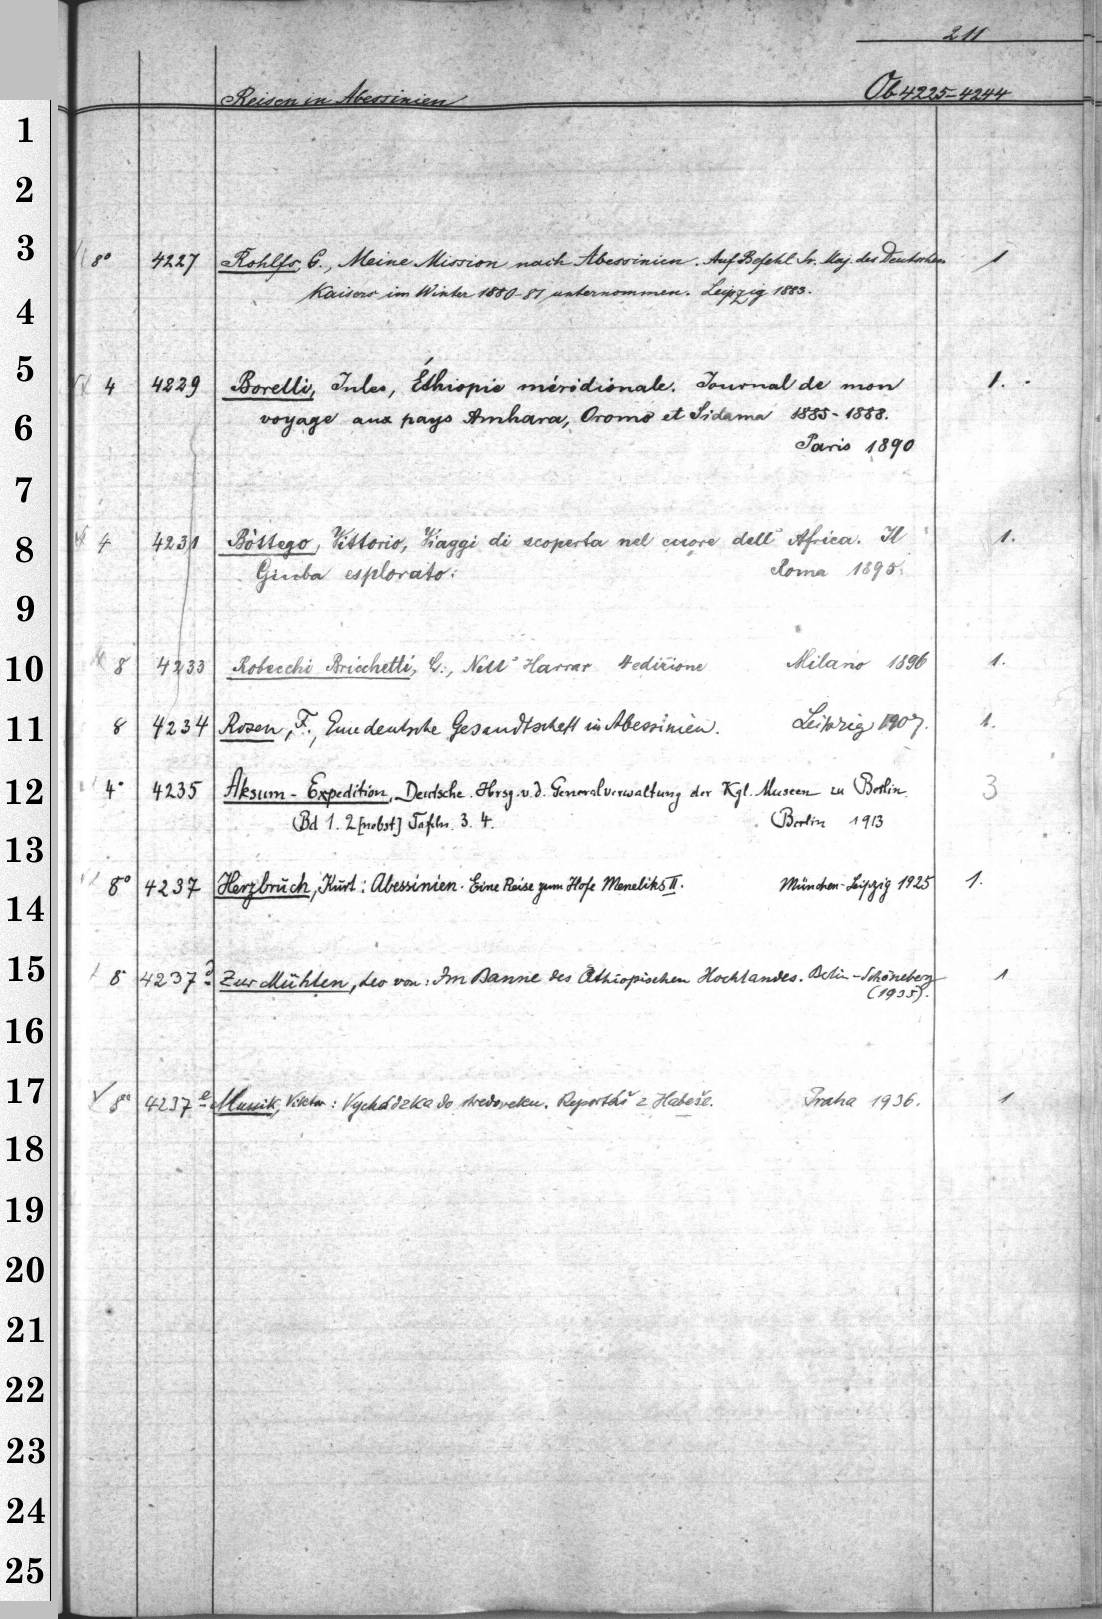 211
Reisen in Abessinien Ob 4225-4244
1
2
3
8° 4227 Rohlfs, G., Meine Mission nach Abessinien. Auf Befehl Sr. Maj. des Deutschen 1
Kaisers im Winter 1880-81 unternommen. Leipzig 1883.
4
5
4 4229 Borelli, Jules, Éthiopie méridionale. Journal de mon 1.
voyage aux pays Amhara, Oromo et Sidama 1885-1888.
6
Paris 1890
7
8
4 4231 Bòttego, Vittorio, Viaggi di scoperta nel cuore dell' Africa. Il 1.
Giuba esplorato. Roma 1895.
9
10
8 4233 Robecchi Bricchetti, L., Nell' Harrar 4 edizione Milano 1896 1.
11
8 4234 Rosen, F., Eine deutsche Gesandtschaft in Abessinien. Leipzig 1907. 1.
12
4° 4235 Aksum-Expedition, Deutsche. Hrsg. v. d. Generalverwaltung der Kgl. Museen zu Berlin. 3
Bd 1. 2 [nebst] Tafeln. 3. 4. Berlin 1913
13
8° 4237 Herzbruch, Kurt: Abessinien. Eine Reise zum Hofe Meneliks II. München-Leipzig 1925 1.
14
15
8° 4237 d Zur Mühlen, Leo von: Im Banne des Äthiopischen Hochlandes. Berlin-Schöneberg 1
(1935).
16
17
8° 4237 e Musik, Viktor: Vychádzka do stredoveku. Reportáž z Habeše. Praha 1936. 1
18
19
20
21
22
23
24
25